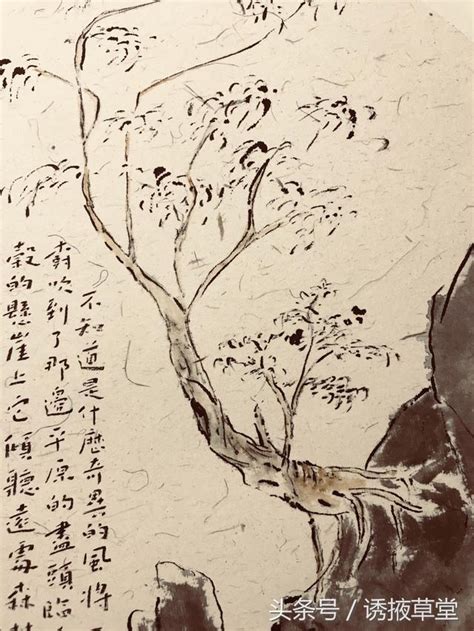 不知道是什麼奇異的風將
樹吹到了那邊平原的盡頭臨
穀的懸崖上它傾聽遠處森林
头条号 / 诱掖草堂